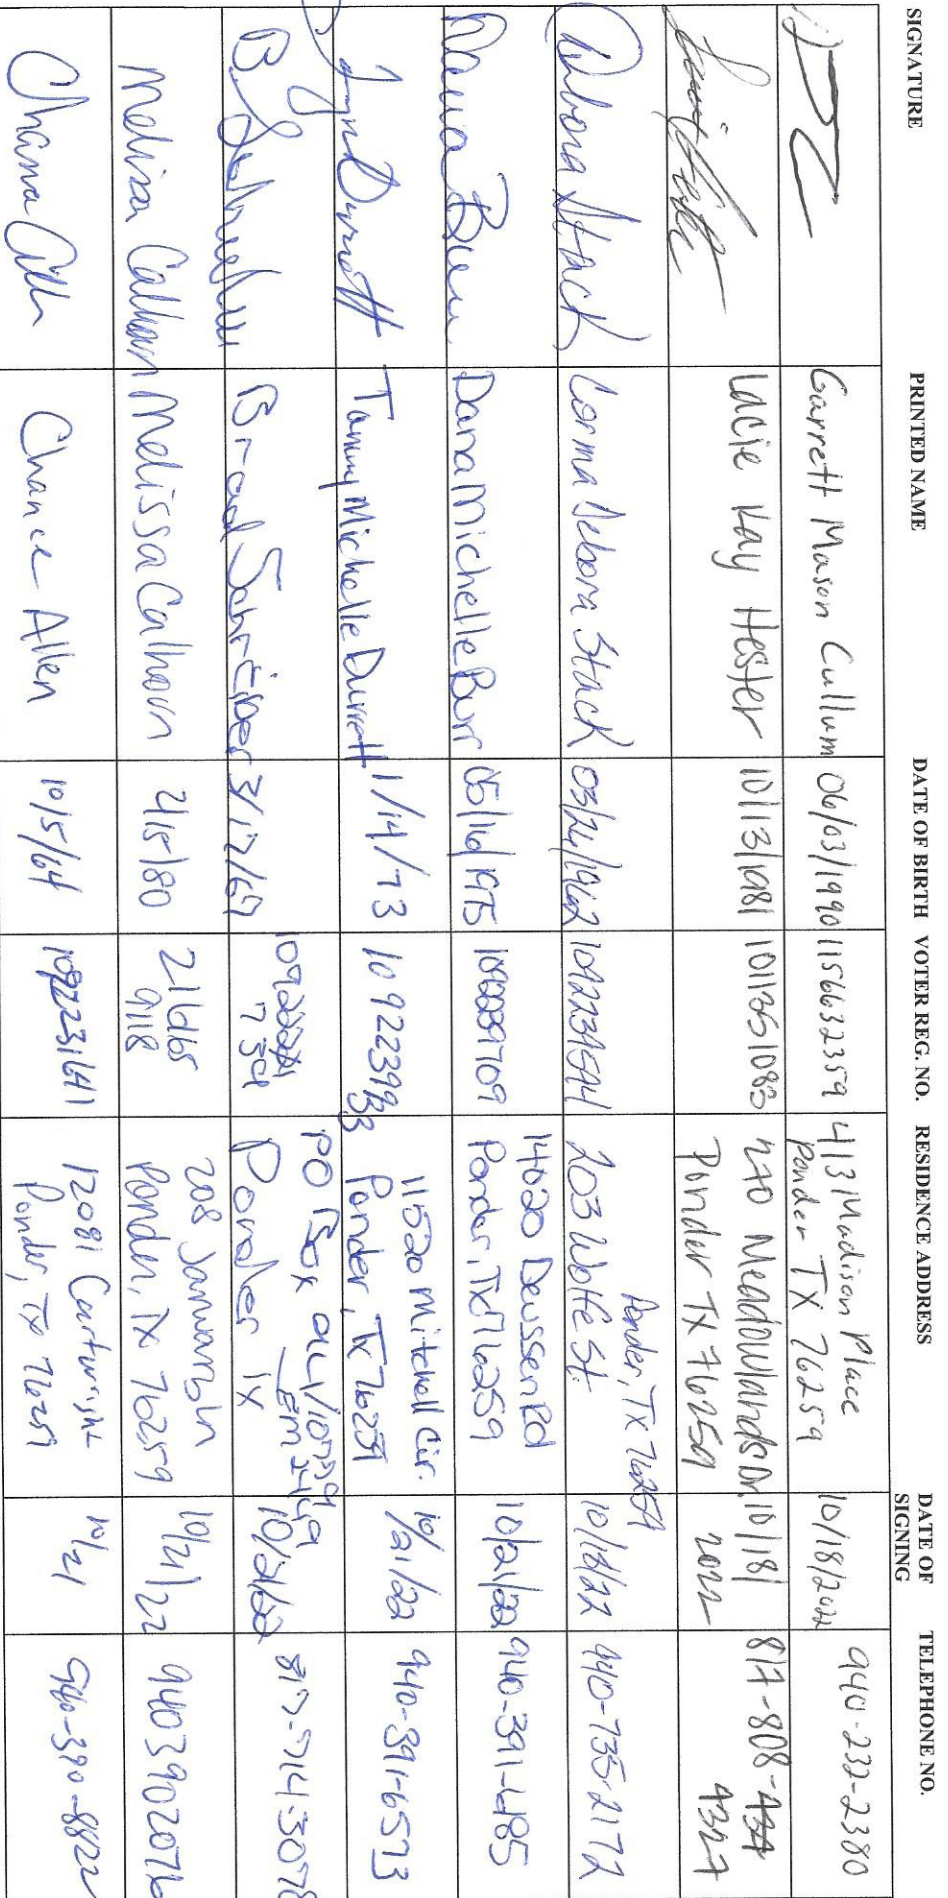 SIGNATURE PRINTED NAME DATE OF BIRTH VOTER REG. NO. RESIDENCE ADDRESS DATE OF SIGNING TELEPHONE NO.
Garrett Mason Cullum 06/03/1990 1156632359 413 Madison Place Ponder TX 76259 10/18/2022 940-232-2380
Lacie Kay Hester 10/13/1981 1011351083 270 Meadowlands Dr. Ponder TX 76259 10/18/2022 817-808-4327
Debora Stack Lorma Debora Stack 03/26/1962 203 Wolfe St. Ponder, Tx 76259 10/18/22 940-735-2172
Dana Burr Dana Michelle Burr 05/16/1975 14020 Deussen Rd Ponder, TX 76259 10/21/22 940-391-1485
Durrett Tammy Michelle Durrett 1/14/73 1092239133 11520 Mitchell Cir. Ponder, Tx 76259 10/21/22 940-391-6573
B. Brad Schreiber 3/17/67 PO Box Ponder TX 10/21/22
Melissa Calhoun Melissa Calhoun 2/15/80 2161659118 208 Ponder, TX 76259 10/21/22 9403902076
Chance Allen 10/5/64 12081 Cartwright Ponder, TX 76259 10/21 940-390-8822